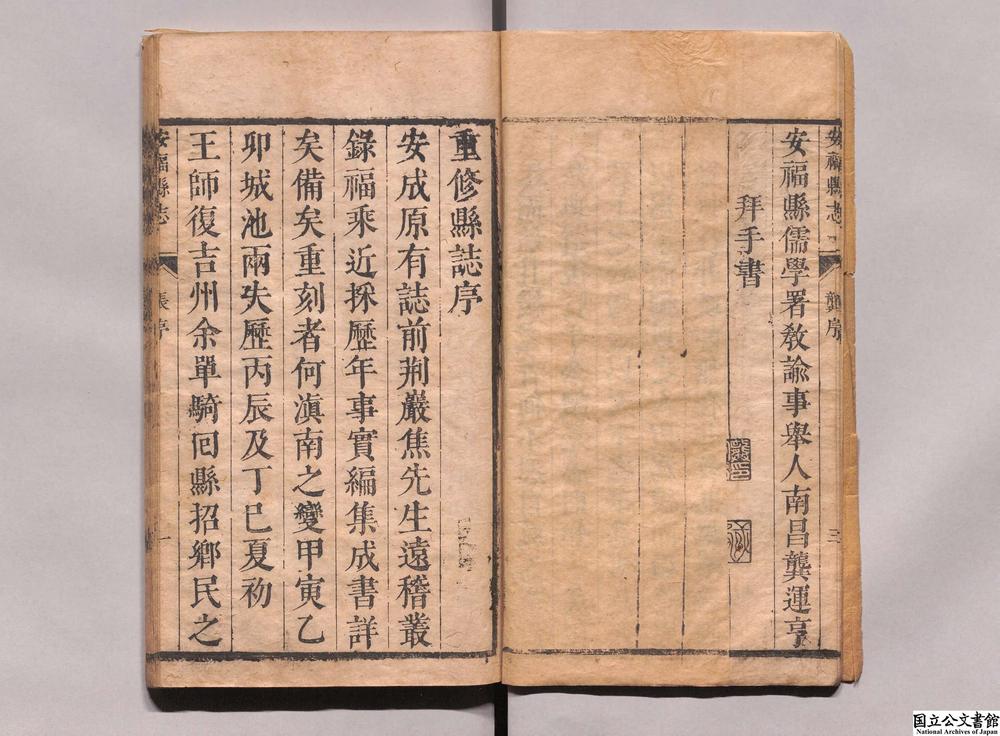 安福縣志
龔序
三
安福縣儒學署教諭事舉人南昌龔運亨
拜手書
重修縣誌序
安成原有誌前荆巖焦先生遠稽叢
錄福乘近採歷年事實編集成書詳
矣備矣重刻者何滇南之變甲寅乙
卯城池兩失歷丙辰及丁巳夏初
王師復吉州余單騎回縣招鄉民之
安福縣志
張序
一
国立公文書館
National Archives of Japan